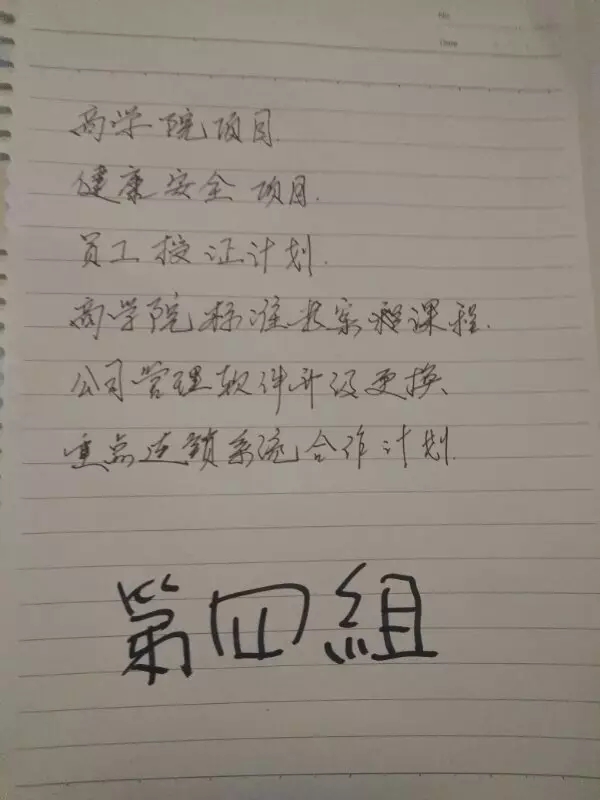 商学院项目.
健康安全 项目.
员工授证计划.
商学院标准 课程.
公司管理软件升级更换、
重点连锁系统合作计划.
第四組